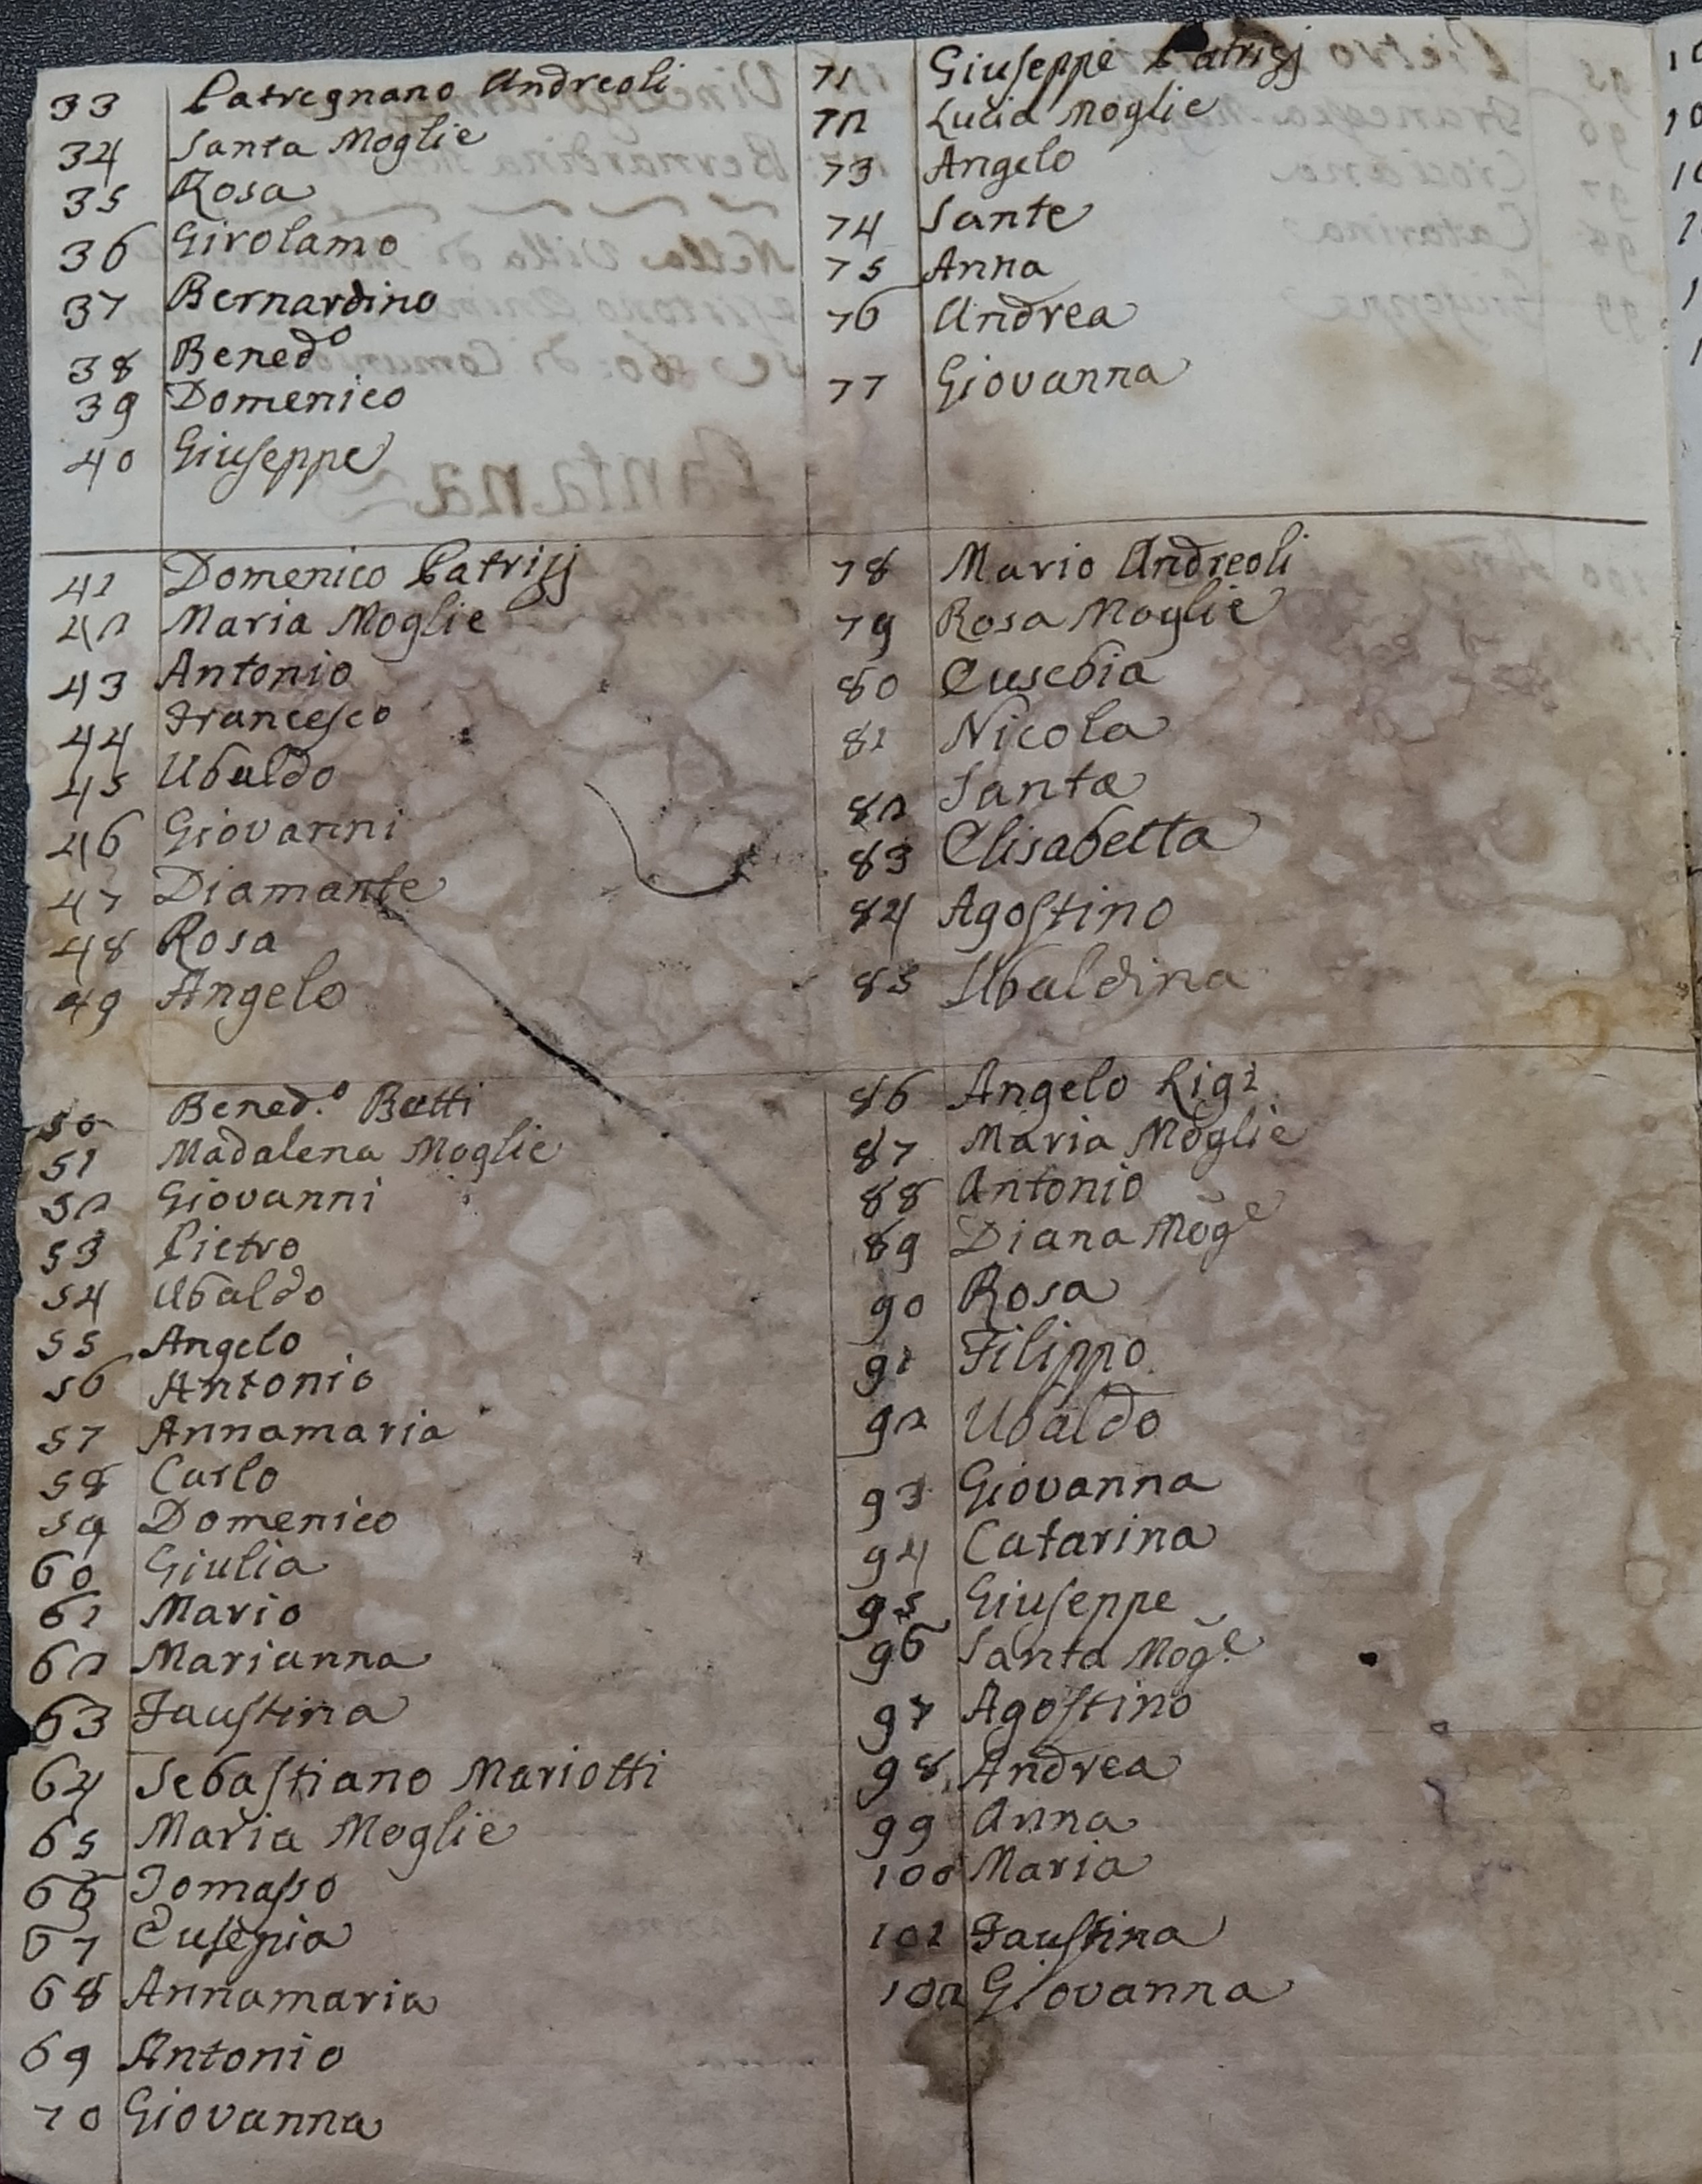 33 Patregnano Andreoli
34 Santa Moglie
35 Rosa
36 Girolamo
37 Bernardino
38 Bened.o
39 Domenico
40 Giuseppe
41 Domenico Patrizj
42 Maria Moglie
43 Antonio
44 Francesco
45 Ubaldo
46 Giovanni
47 Diamante
48 Rosa
49 Angelo
50 Bened.o Betti
51 Madalena Moglie
52 Giovanni
53 Pietro
54 Ubaldo
55 Angelo
56 Antonio
57 Annamaria
58 Carlo
59 Domenico
60 Giulia
61 Mario
62 Marianna
63 Faustina
64 Sebastiano Mariotti
65 Maria Moglie
66 Tomasso
67 Eusepia
68 Annamaria
69 Antonio
70 Giovanna
71 Giuseppe Patrizj
72 Lucia Moglie
73 Angelo
74 Sante
75 Anna
76 Andrea
77 Giovanna
78 Mario Andreoli
79 Rosa Moglie
80 Eusebia
81 Nicola
82 Santa
83 Elisabetta
84 Agostino
85 Ubaldina
86 Angelo Ligi
87 Maria Moglie
88 Antonio
89 Diana Mog.e
90 Rosa
91 Filippo
92 Ubaldo
93 Giovanna
94 Catarina
95 Giuseppe
96 Santa Mog.e
97 Agostino
98 Andrea
99 Anna
100 Maria
101 Faustina
102 Giovanna